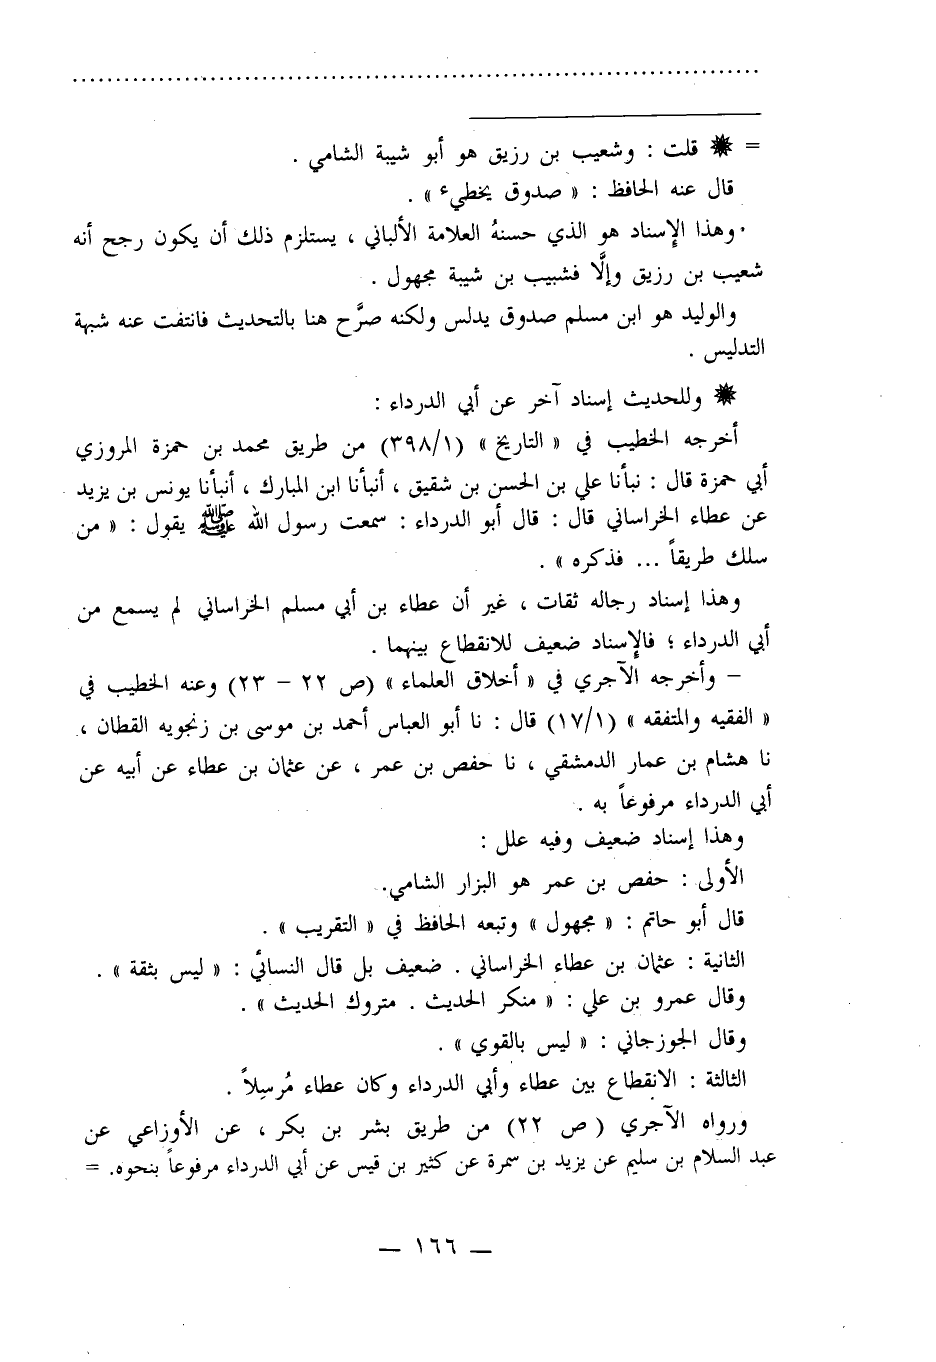 = ✹ قلت : وشعيب بن رزيق هو أبو شيبة الشامي .
قال عنه الحافظ : « صدوق يخطيء » .
وهذا الإسناد هو الذي حسنهُ العلامة الألباني ، يستلزم ذلك أن يكون رجح أنه
شعيب بن رزيق وإلَّا فشبيب بن شيبة مجهول .
والوليد هو ابن مسلم صدوق يدلس ولكنه صرَّح هنا بالتحديث فانتفت عنه شبهة
التدليس .
✹ وللحديث إسناد آخر عن أبي الدرداء :
أخرجه الخطيب في « التاريخ » (٣٩٨/١) من طريق محمد بن حمزة المروزي
أبي حمزة قال : نبأنا علي بن الحسن بن شقيق ، أنبأنا ابن المبارك ، أنبأنا يونس بن يزيد
عن عطاء الخراساني قال : قال أبو الدرداء : سمعت رسول الله ﷺ يقول : « من
سلك طريقاً ... فذكره » .
وهذا إسناد رجاله ثقات ، غير أن عطاء بن أبي مسلم الخراساني لم يسمع من
أبي الدرداء ؛ فالإسناد ضعيف للانقطاع بينهما .
– وأخرجه الآجري في « أخلاق العلماء » (ص ٢٢ – ٢٣) وعنه الخطيب في
« الفقيه والمتفقه » (١٧/١) قال : نا أبو العباس أحمد بن موسى بن زنجويه القطان ،
نا هشام بن عمار الدمشقي ، نا حفص بن عمر ، عن عثمان بن عطاء عن أبيه عن
أبي الدرداء مرفوعاً به .
وهذا إسناد ضعيف وفيه علل :
الأولى : حفص بن عمر هو البزار الشامي.
قال أبو حاتم : « مجهول » وتبعه الحافظ في « التقريب » .
الثانية : عثمان بن عطاء الخراساني . ضعيف بل قال النسائي : « ليس بثقة » .
وقال عمرو بن علي : « منكر الحديث . متروك الحديث » .
وقال الجوزجاني : « ليس بالقوي » .
الثالثة : الانقطاع بين عطاء وأبي الدرداء وكان عطاء مُرسِلاً .
ورواه الآجري ( ص ٢٢) من طريق بشر بن بكر ، عن الأوزاعي عن
عبد السلام بن سليم عن يزيد بن سمرة عن كثير بن قيس عن أبي الدرداء مرفوعاً بنحوه. =
— ١٦٦ —